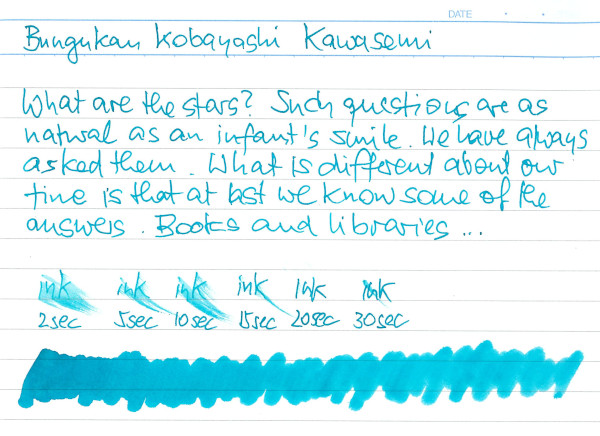 DATE
Bungukan Kobayashi Kawasemi
What are the stars? Such questions are as
natural as an infant's smile. We have always
asked them. What is different about our
time is that at last we know some of the
answers. Books and libraries...
ink ink ink ink Ink ink
2sec 5sec 10sec 15sec 20sec 30sec